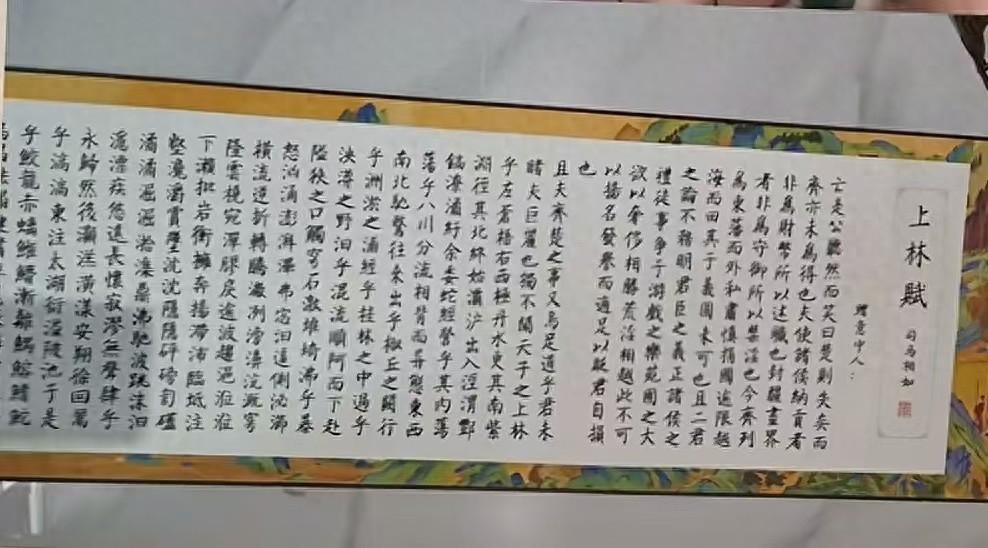 上林賦
司馬相如
贈意中人：
亡是公聽然而笑曰楚則失矣而
齊亦未為得也夫使諸侯納貢者
非為財幣所以述職也封疆畫界
者非為守御所以禁淫也今齊列
為東藩而外私肅慎捐國逾限越
海而田其于義固未可也且二君
之論不務明君臣之義正諸侯之
禮徒事爭于游戲之樂苑囿之大
欲以奢侈相勝荒淫相越此不可
以揚名發譽而適足以貶君自損
也
且夫齊楚之事又烏足道乎君未
睹夫巨麗也獨不聞天子之上林
乎左蒼梧右西極丹水更其南紫
淵徑其北終始灞滻出入涇渭酆
鎬潦潏紆余委蛇經營乎其內蕩
蕩乎八川分流相背而異態東西
南北馳騖往來出乎椒丘之闕行
乎洲淤之浦經乎桂林之中過乎
泱漭之野汩乎混流順阿而下赴
隘狹之口觸穹石激堆埼沸乎暴
怒洶涌澎湃滭弗宓汩逼側泌瀄
橫流逆折轉騰潎洌滂濞沆溉穹
隆雲橈宛潬膠戾逾波趨浥涖涖
下瀨批岩衝擁奔揚滯沛臨坻注
壑瀺灂霣墜沈沈隱隱砰磅訇礚
潏潏淈淈湁潗鼎沸馳波跳沫汩
漂疾悠遠長懷寂漻無聲肆乎
永歸然後灝溔潢漾安翔徐回翯
乎滈滈東注太湖衍溢陂池于是
乎鮫龍赤螭䱎䲛漸離鰅鰫鰭鮀